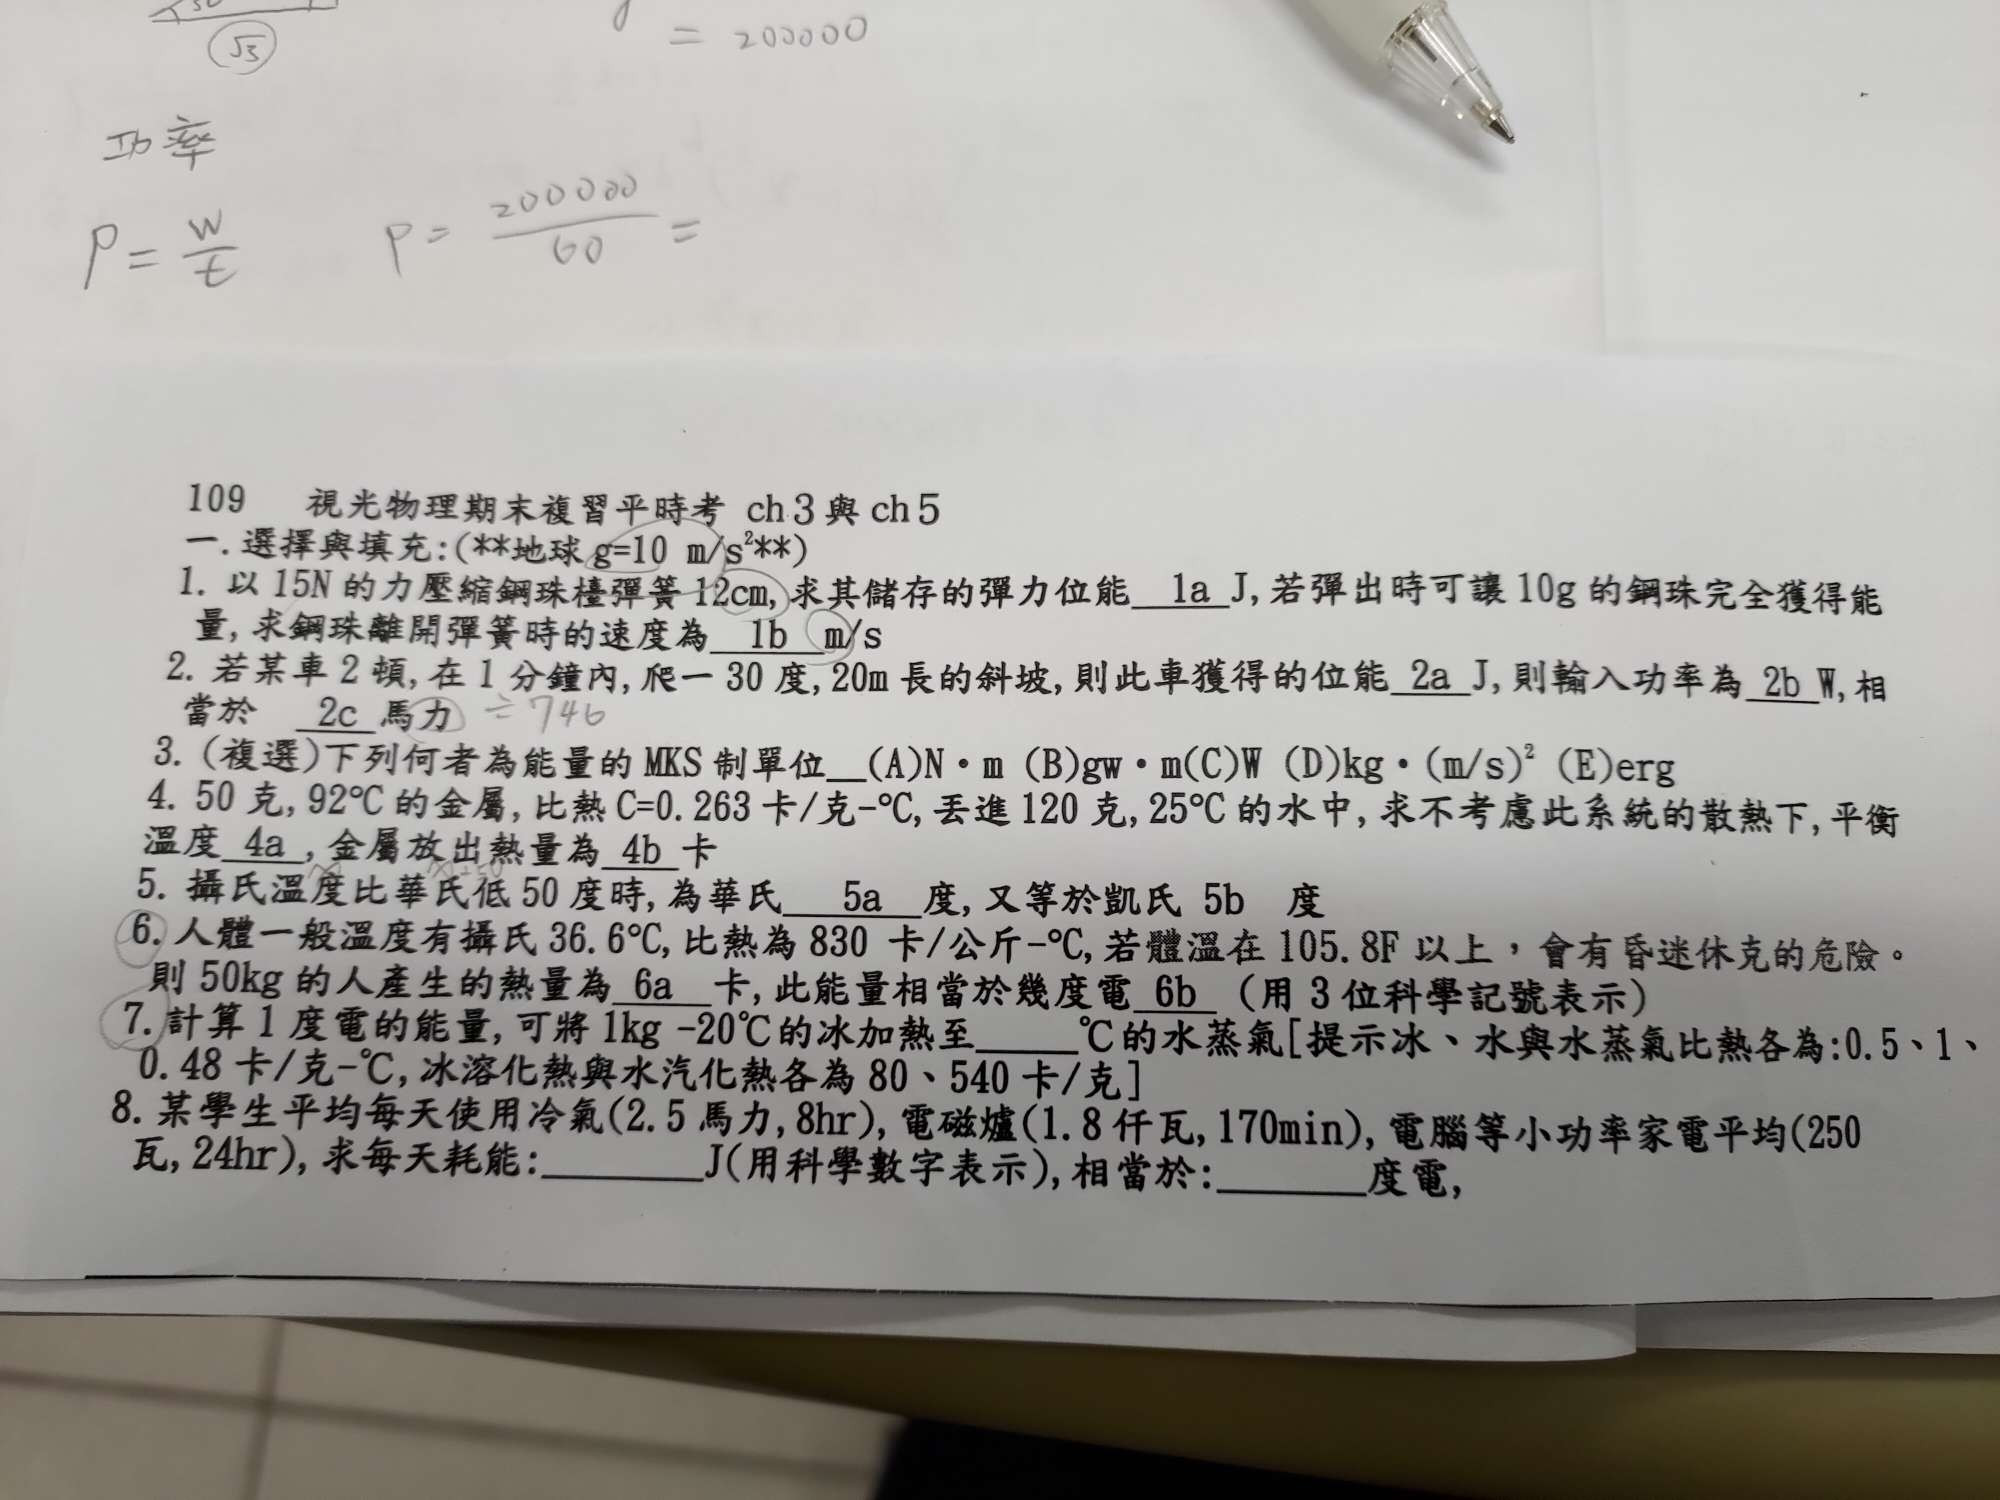 √3
= 200000
功率
P = W/t P = 200000/60 =
109 視光物理期末複習平時考 ch３與 ch５
一.選擇與填充:(**地球 g=10 m/s²**)
1. 以 15N 的力壓縮鋼珠檯彈簧 12cm,求其儲存的彈力位能 1a J,若彈出時可讓 10g 的鋼珠完全獲得能
量,求鋼珠離開彈簧時的速度為 1b m/s
2. 若某車 2 頓,在 1 分鐘內,爬一 30 度,20m 長的斜坡,則此車獲得的位能 2a J,則輸入功率為 2b W,相
當於 2c 馬力 ÷746
3. (複選)下列何者為能量的 MKS 制單位__(A)N·m (B)gw·m(C)W (D)kg·(m/s)² (E)erg
4. 50 克,92℃的金屬,比熱 C=0.263 卡/克-℃,丟進 120 克,25℃的水中,求不考慮此系統的散熱下,平衡
溫度 4a ,金屬放出熱量為 4b 卡
5. 攝氏溫度比華氏低 50 度時,為華氏 5a 度,又等於凱氏 5b 度
6. 人體一般溫度有攝氏 36.6℃,比熱為 830 卡/公斤-℃,若體溫在 105.8F 以上，會有昏迷休克的危險。
則 50kg 的人產生的熱量為 6a 卡,此能量相當於幾度電 6b (用 3 位科學記號表示)
7. 計算 1 度電的能量,可將 1kg -20℃的冰加熱至_____℃的水蒸氣[提示冰、水與水蒸氣比熱各為:0.5、1、
0.48 卡/克-℃,冰溶化熱與水汽化熱各為 80、540 卡/克]
8. 某學生平均每天使用冷氣(2.5 馬力,8hr),電磁爐(1.8 仟瓦,170min),電腦等小功率家電平均(250
瓦,24hr),求每天耗能:________J(用科學數字表示),相當於:_______度電,